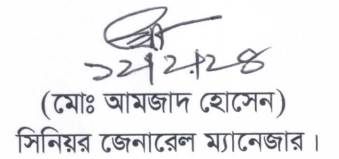 (মোঃ আমজাদ হোসেন)
সিনিয়র জেনারেল ম্যানেজার।